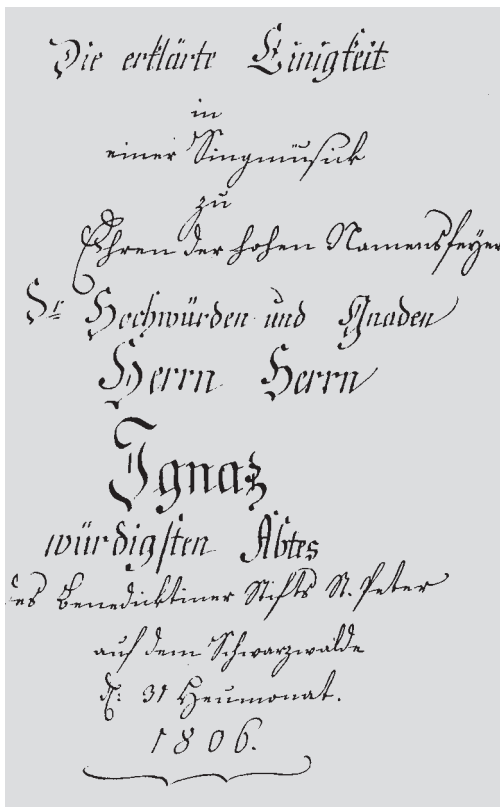 Die erklärte Einigkeit
in
einer Singmusick
zu
Ehren der hohen Namensfeyer
Sr Hochwürden und Gnaden
Herrn Herrn
Ignaz
würdigsten Abtes
des Benedicktiner Stifts St. Peter
auf dem Schwarzwalde
d: 31 Heumonat.
1806.